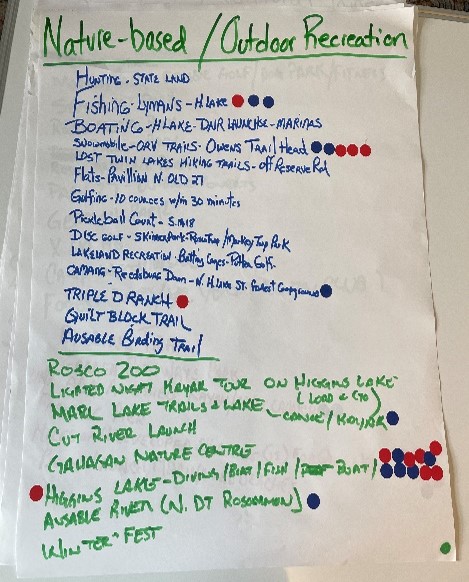 Nature-based / Outdoor Recreation
HUNTING - STATE LAND
Fishing - Lymans - H. Lake
BOATING - H LAKE - DNR LAUNCHSE - MARINAS
SNOWMOBILE - ORV TRAILS - Owens Trail Head
LOST TWIN LAKES HIKING TRAILS - off Reserve Rd
Flats - Pavillian N. OLD 27
Golfing - 10 cources w/in 30 minutes
Pickleball Count - S. M18
DISC GOLF - Skinner Park - / Markey Twp Park
LAKELAND RECREATION - Batting Cages - Putter Golf
CAMPING - Reedsburg Dam - N. H. Lake St. Forest Campgrounds
TRIPLE D RANCH
QUILT BLOCK TRAIL
AUSABLE Birding TRAIL
ROSCO ZOO
LIGHTED NIGHT KAYAK TOUR ON HIGGINS LAKE
( LOAD & GO
MARL LAKE TRAILS & LAKE - CANOE / KAYAK
CUT RIVER LAUNCH
GAHAGAN NATURE CENTRE
HIGGINS LAKE - DIVING / BOAT / FISH / BOAT /
AUSABLE RIVER (N. DT ROSCOMMON)
WINTER FEST